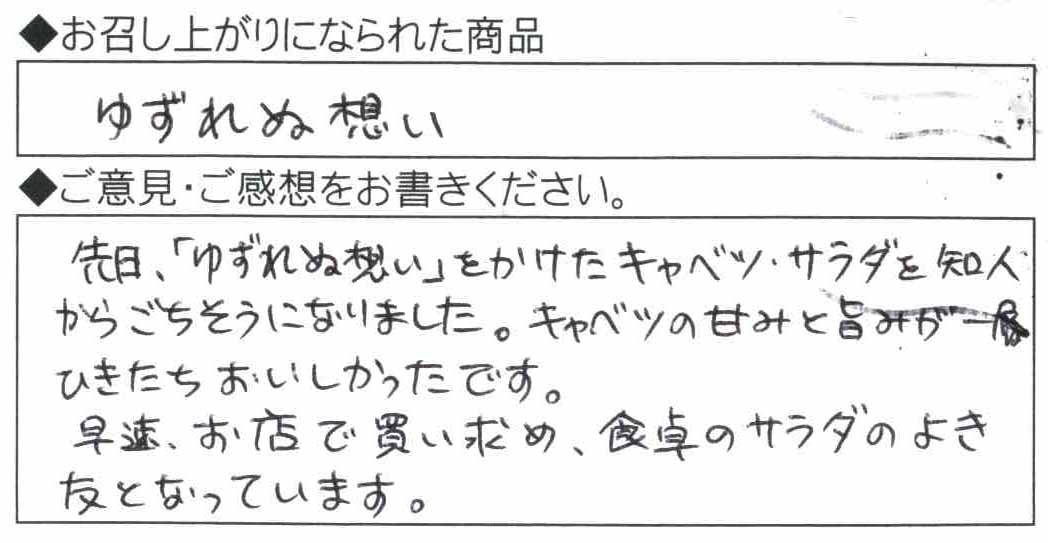 ◆お召し上がりになられた商品
ゆずれぬ想い
◆ご意見・ご感想をお書きください。
先日、「ゆずれぬ想い」をかけたキャベツ・サラダを知人
からごちそうになりました。キャベツの甘みと旨みが一層
ひきたちおいしかったです。
早速、お店で買い求め、食卓のサラダのよき
友となっています。